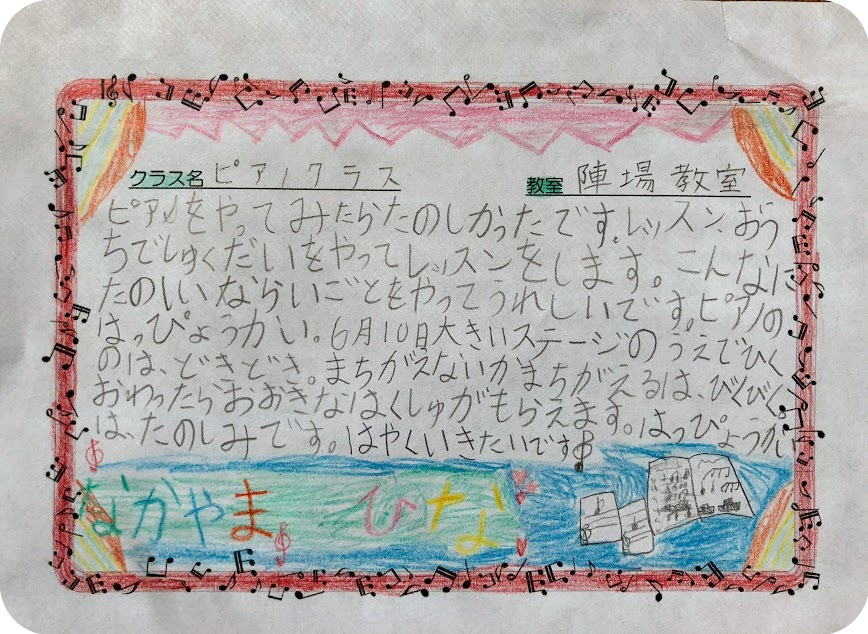 クラス名 ピアノクラス 教室 陣場教室
ピアノをやってみたらたのしかったです。レッスン、おう
ちでしゅくだいをやってレッスンをします。こんなに
たのしいならいごとをやってうれしいです。ピアノの
はっぴょうかい。6月10日大きいステージのうえでひく
のは、どきどき。まちがえないかまちがえるは、びくびく。
おわったらおおきなはくしゅがもらえます。はっぴょうかい
は、たのしみです。はやくいきたいです
なかやま ひな